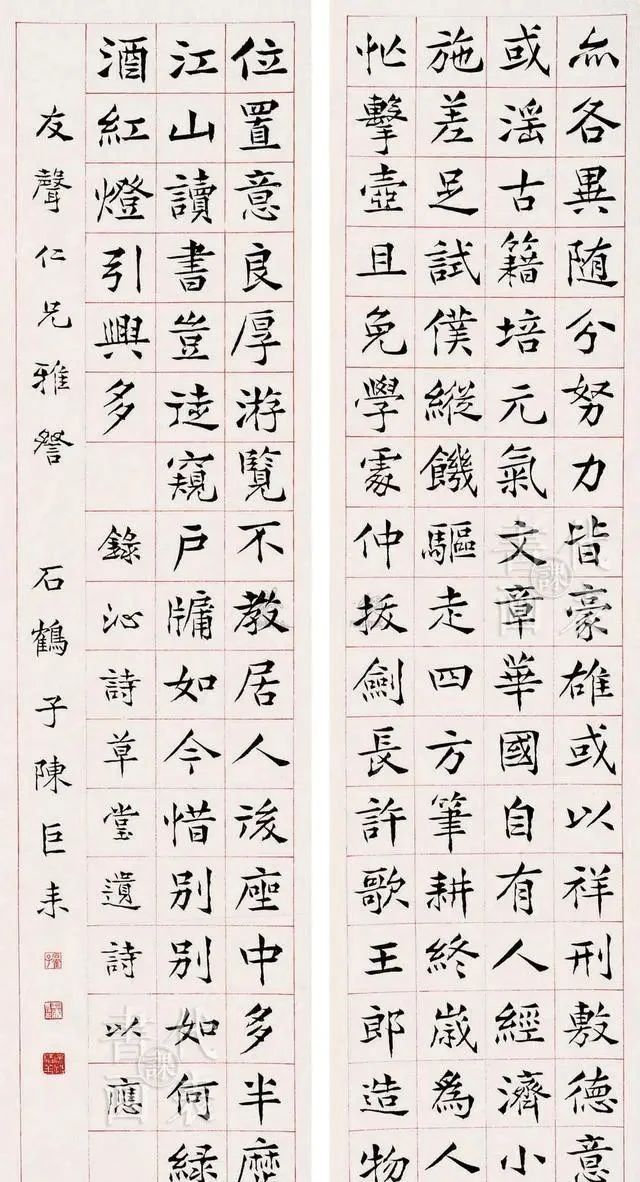 亦各異随分努力皆豪雄或以祥刑敷德意
或滛古籍培元氣文章華國自有人經濟小
施差足試僕縱饑驅走四方筆耕終歲為人
忙擊壺且免學處仲拔劍長許歌王郎造物
位置意良厚游覽不教居人後座中多半歷
江山讀書豈徒窺戶牖如今惜別別如何緑
酒紅燈引興多 錄沁詩草堂遺詩以應
友聲仁兄雅詧 石鶴子陳巨耒